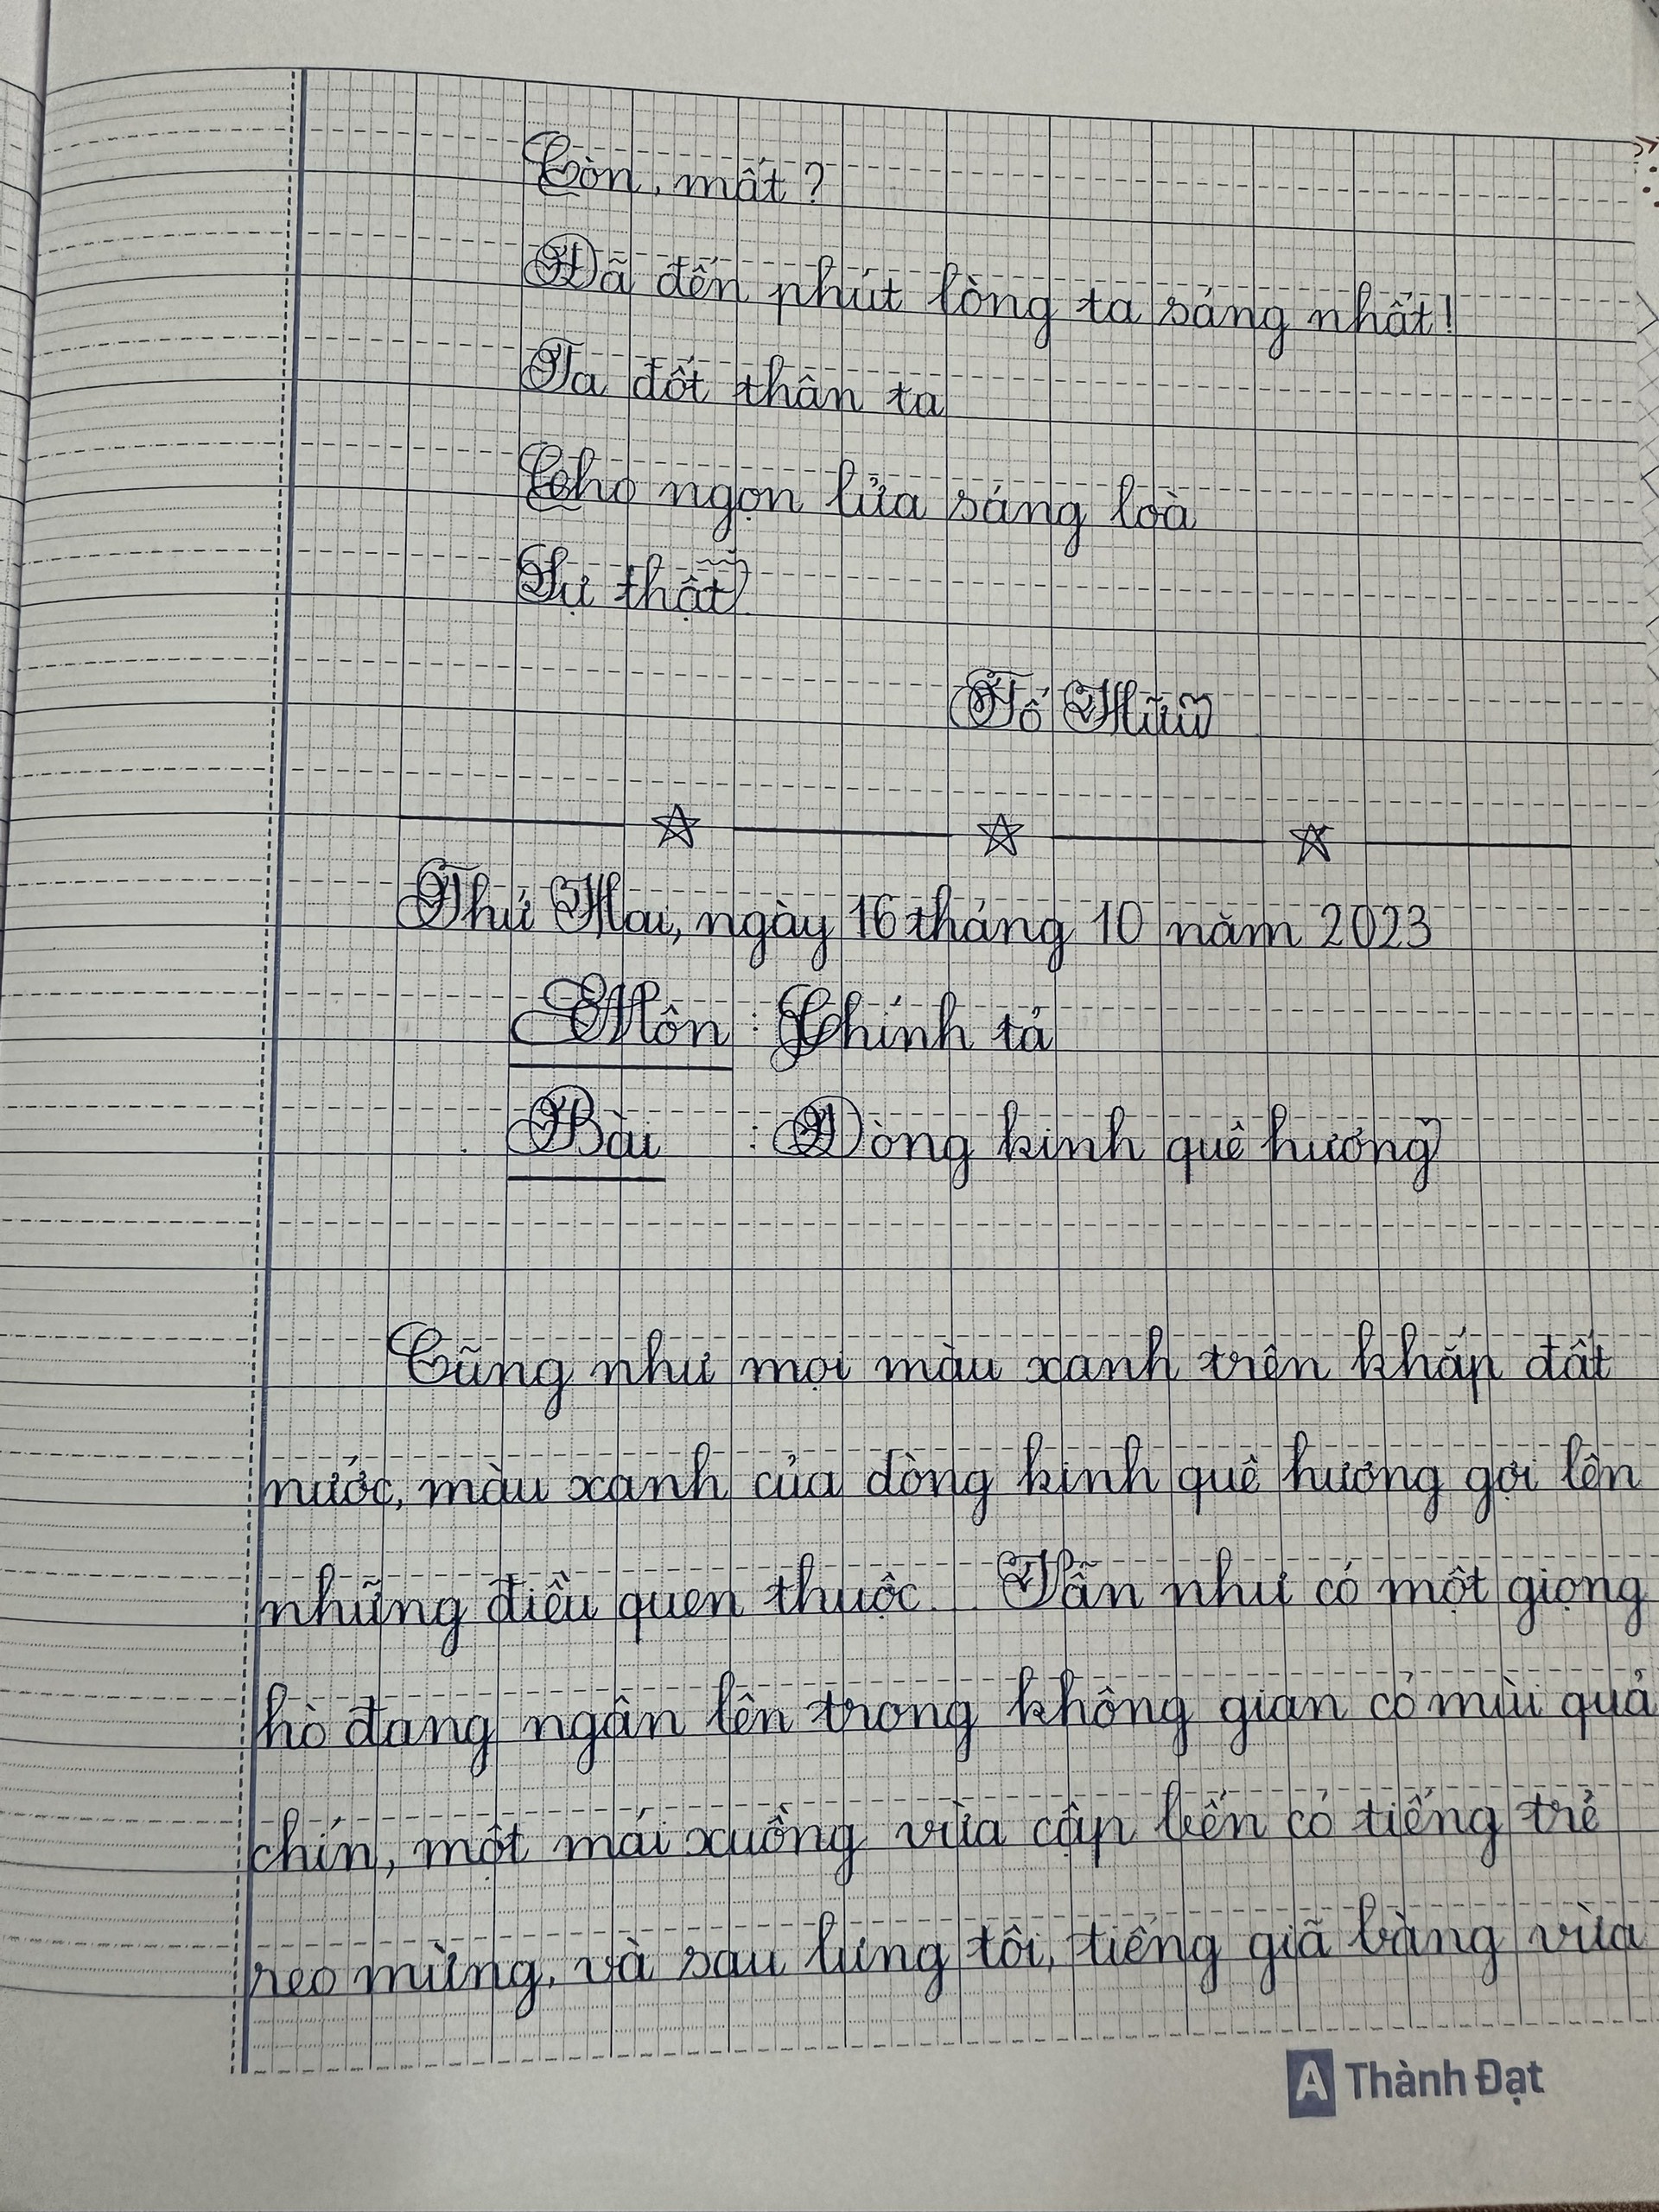 Còn, mất?
Đã đến phút lòng ta sáng nhất!
Ta đốt thân ta
Cho ngọn lửa sáng loà
Sự thật.
Tố Hữu
Thứ Hai, ngày 16 tháng 10 năm 2023
Môn : Chính tả
Bài : Dòng kinh quê hương
Cũng như mọi màu xanh trên khắp đất
nước, màu xanh của dòng kinh quê hương gợi lên
những điều quen thuộc... Vẫn như có một giọng
hò đang ngân lên trong không gian có mùi quả
chín, một mái xuồng vừa cập bến có tiếng trẻ
reo mừng, và sau lưng tôi, tiếng giã bàng vừa
A Thành Đạt